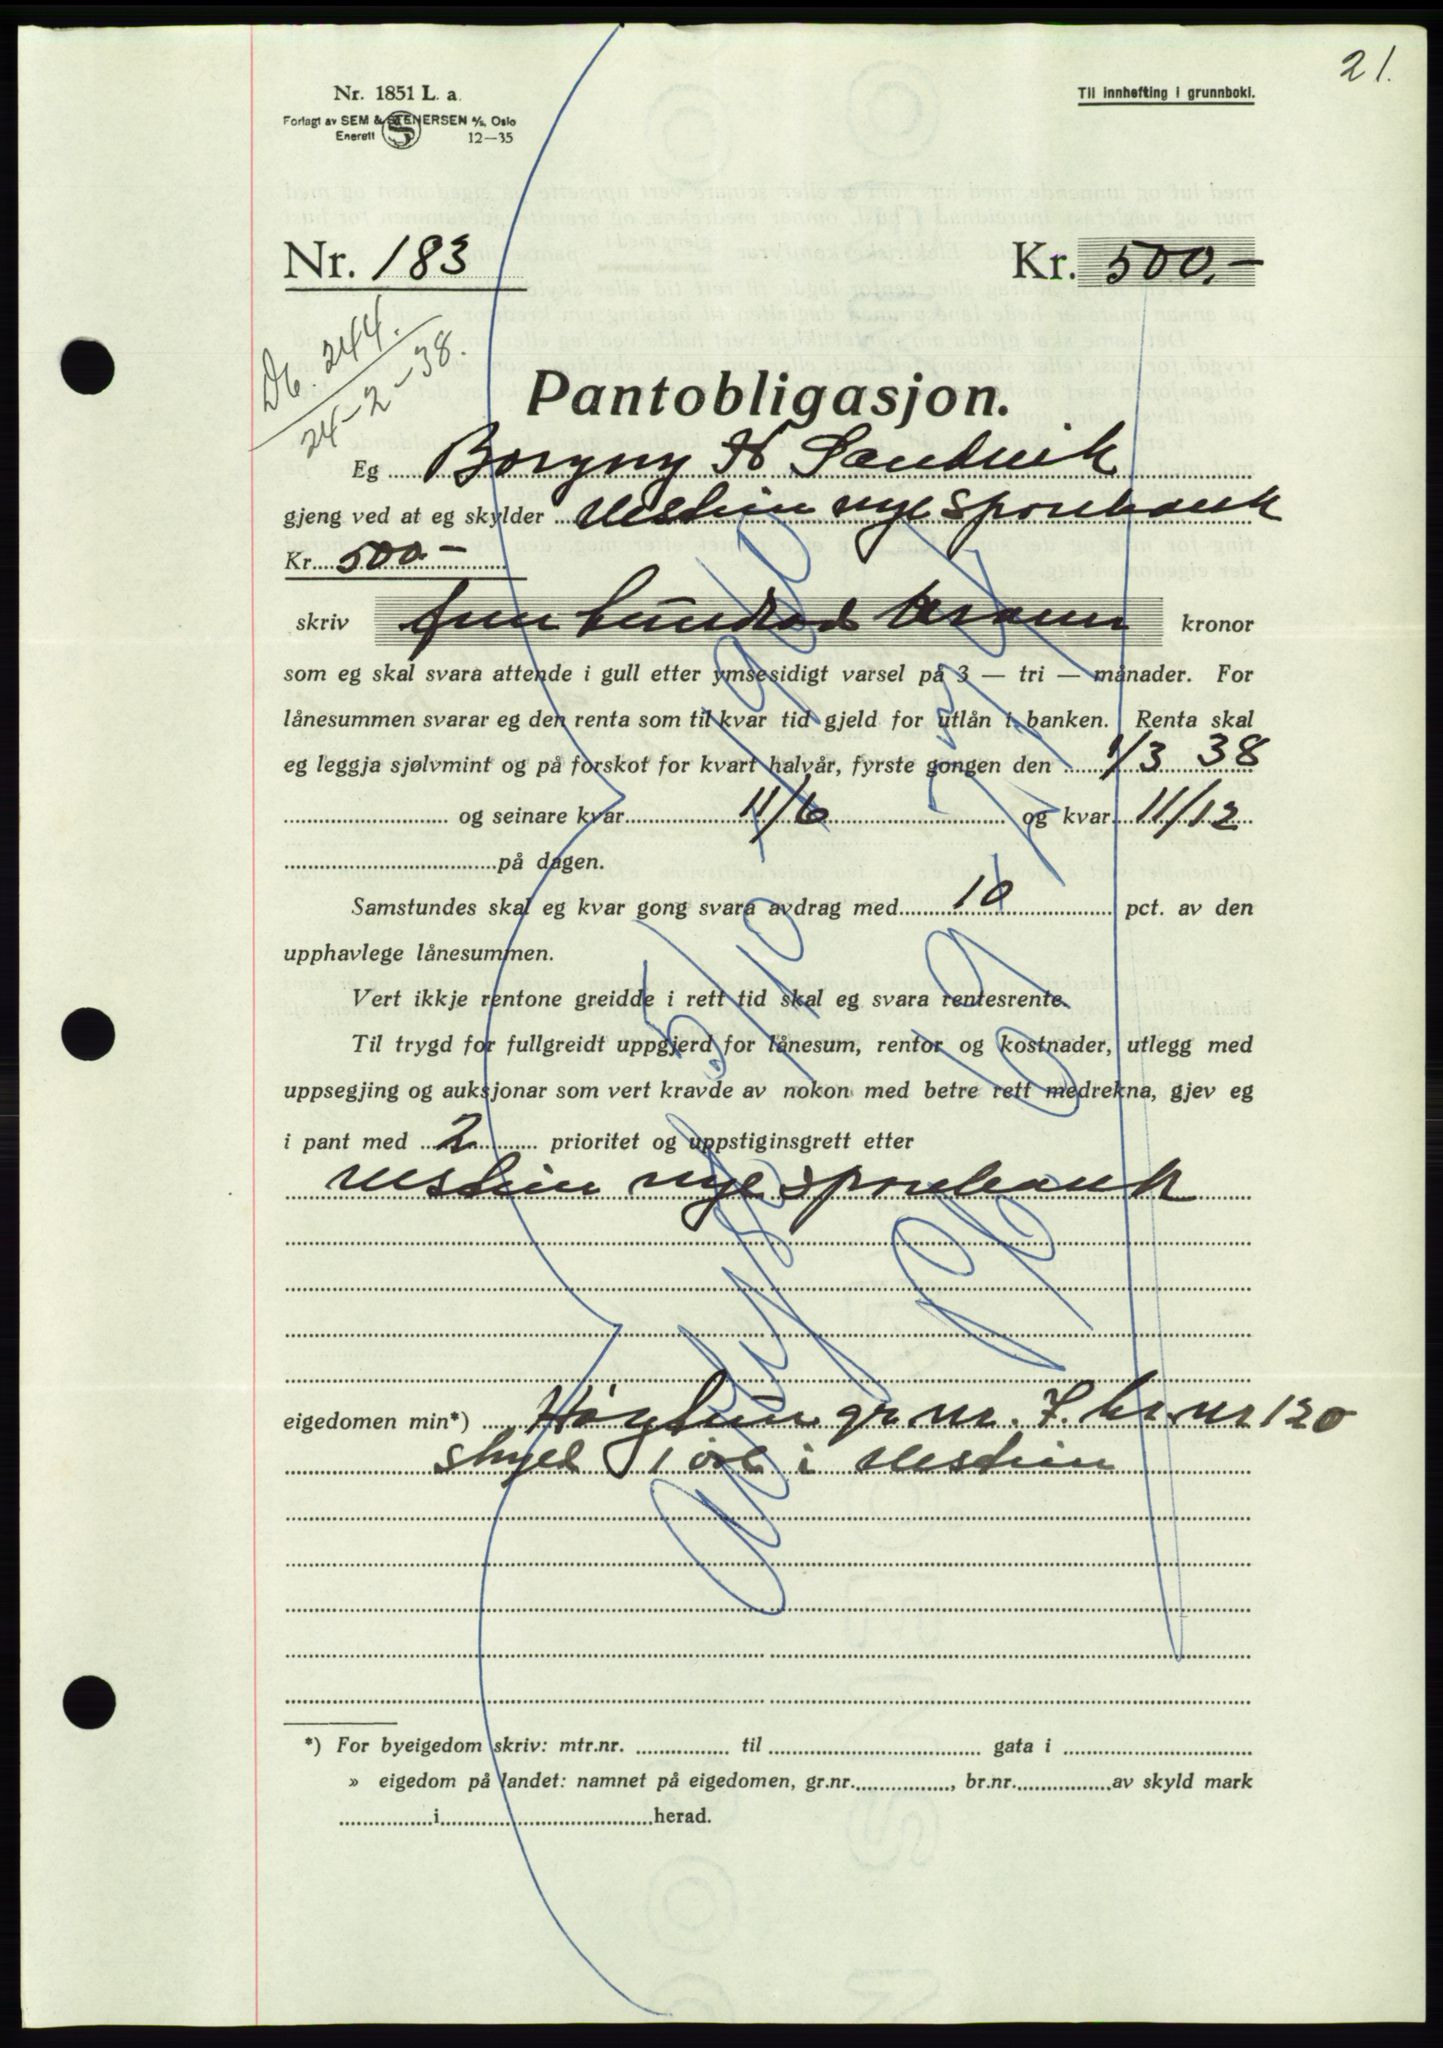 21.
Nr. 1851 L. a.
Forlagt av SEM & STENERSEN A/S, Oslo
Enerett 12—35
Til innhefting i grunnboki.
Nr. 183
Kr. 500,—
Db. 244.
24-2-38.
Pantobligasjon.
Eg Borgny H Sandvik
gjeng ved at eg skylder nye Sparebank
Kr. 500.—
skriv fem hundrad kroner kronor
som eg skal svara attende i gull etter ymsesidigt varsel på 3 — tri — månader. For
lånesummen svarar eg den renta som til kvar tid gjeld for utlån i banken. Renta skal
eg leggja sjølvmint og på forskot for kvart halvår, fyrste gongen den 1/3 38
og seinare kvar 11/6 og kvar 11/12
på dagen.
Samstundes skal eg kvar gong svara avdrag med 10 pct. av den
upphavlege lånesummen.
Vert ikkje rentone greidde i rett tid skal eg svara rentesrente.
Til trygd for fullgreidt uppgjerd for lånesum, rentor og kostnader, utlegg med
uppsegjing og auksjonar som vert kravde av nokon med betre rett medrekna, gjev eg
i pant med 2 prioritet og uppstiginsgrett etter
nye sparebank
eigedomen min*) Høgtun gr. nr. 7. br. nr 120
skyld 1 øre i
Avlyst 5/10
*) For byeigedom skriv: mtr.nr. til gata i
» eigedom på landet: namnet på eigedomen, gr.nr. , br.nr. av skyld mark
i herad.